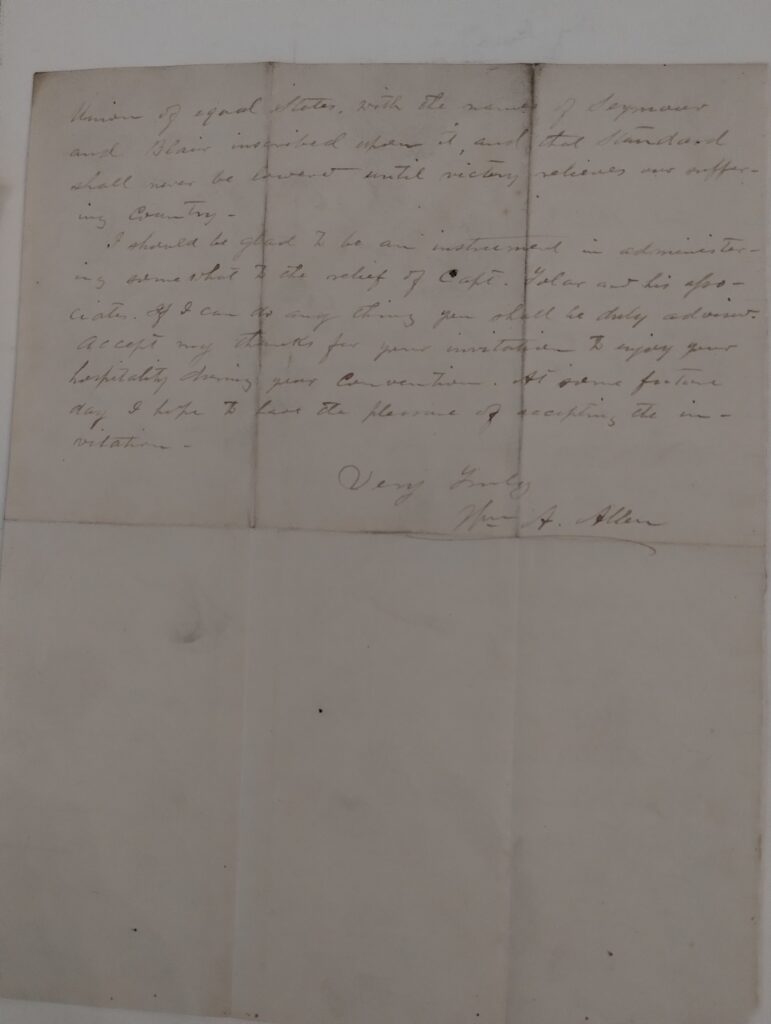 Union of equal States, with the names of Seymour
and Blair inscribed upon it, and that Standard
shall never be lowered until victory relieves our suffer-
ing Country -
I should be glad to be an instrument in administer-
ing somewhat to the relief of Capt. Tolar and his asso-
ciates. If I can do any thing you shall be duly advised.
Accept my thanks for your invitation to enjoy your
hospitality during your Convention. At some future
day I hope to have the pleasure of accepting the in-
vitation -
Very Truly
Wm A. Allen